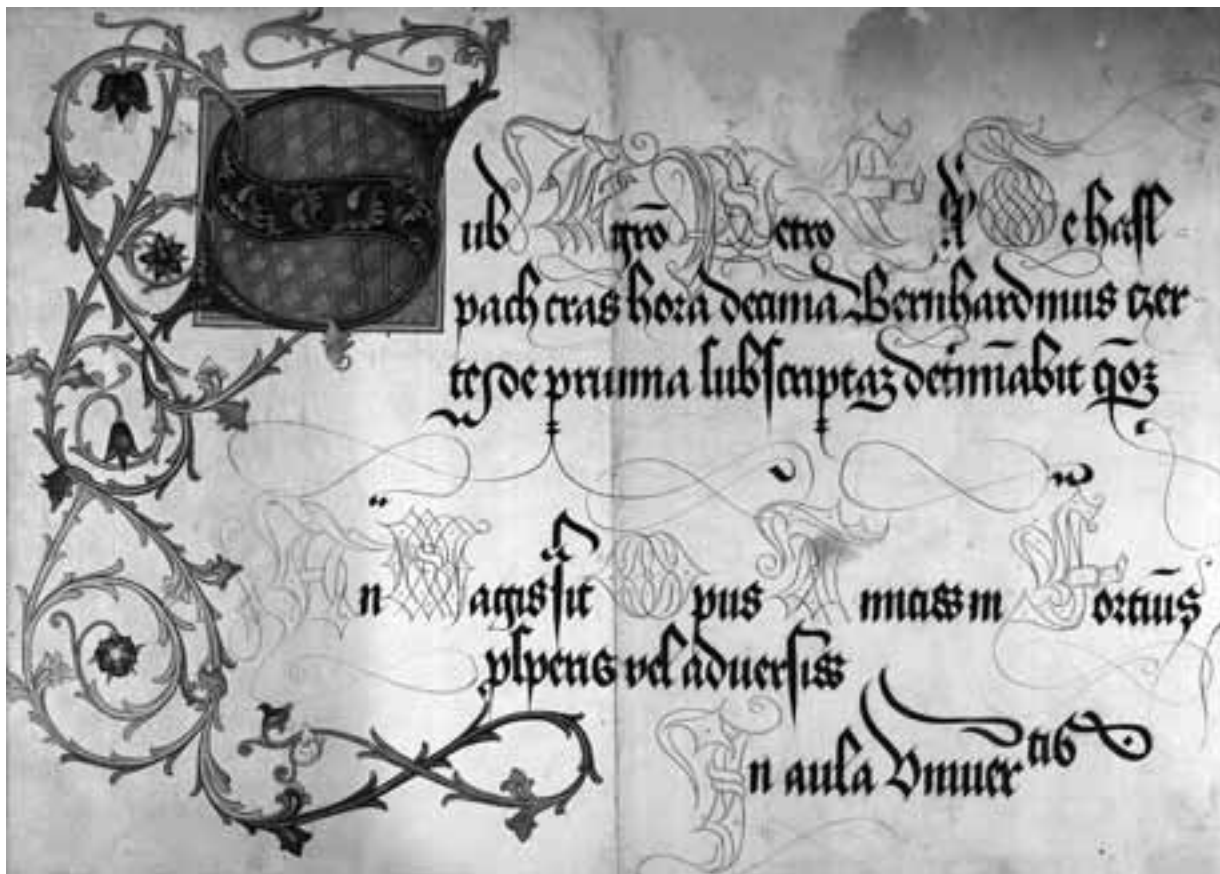 Sub Mgrō Petro de hasl
pach cras hora decima Bernhardinus czer
tes de prunna subscriptaz determinabit qōz
An Magis sit Opus fortius
ī pͣsperis vel aduersis
In aula Vniuer tis